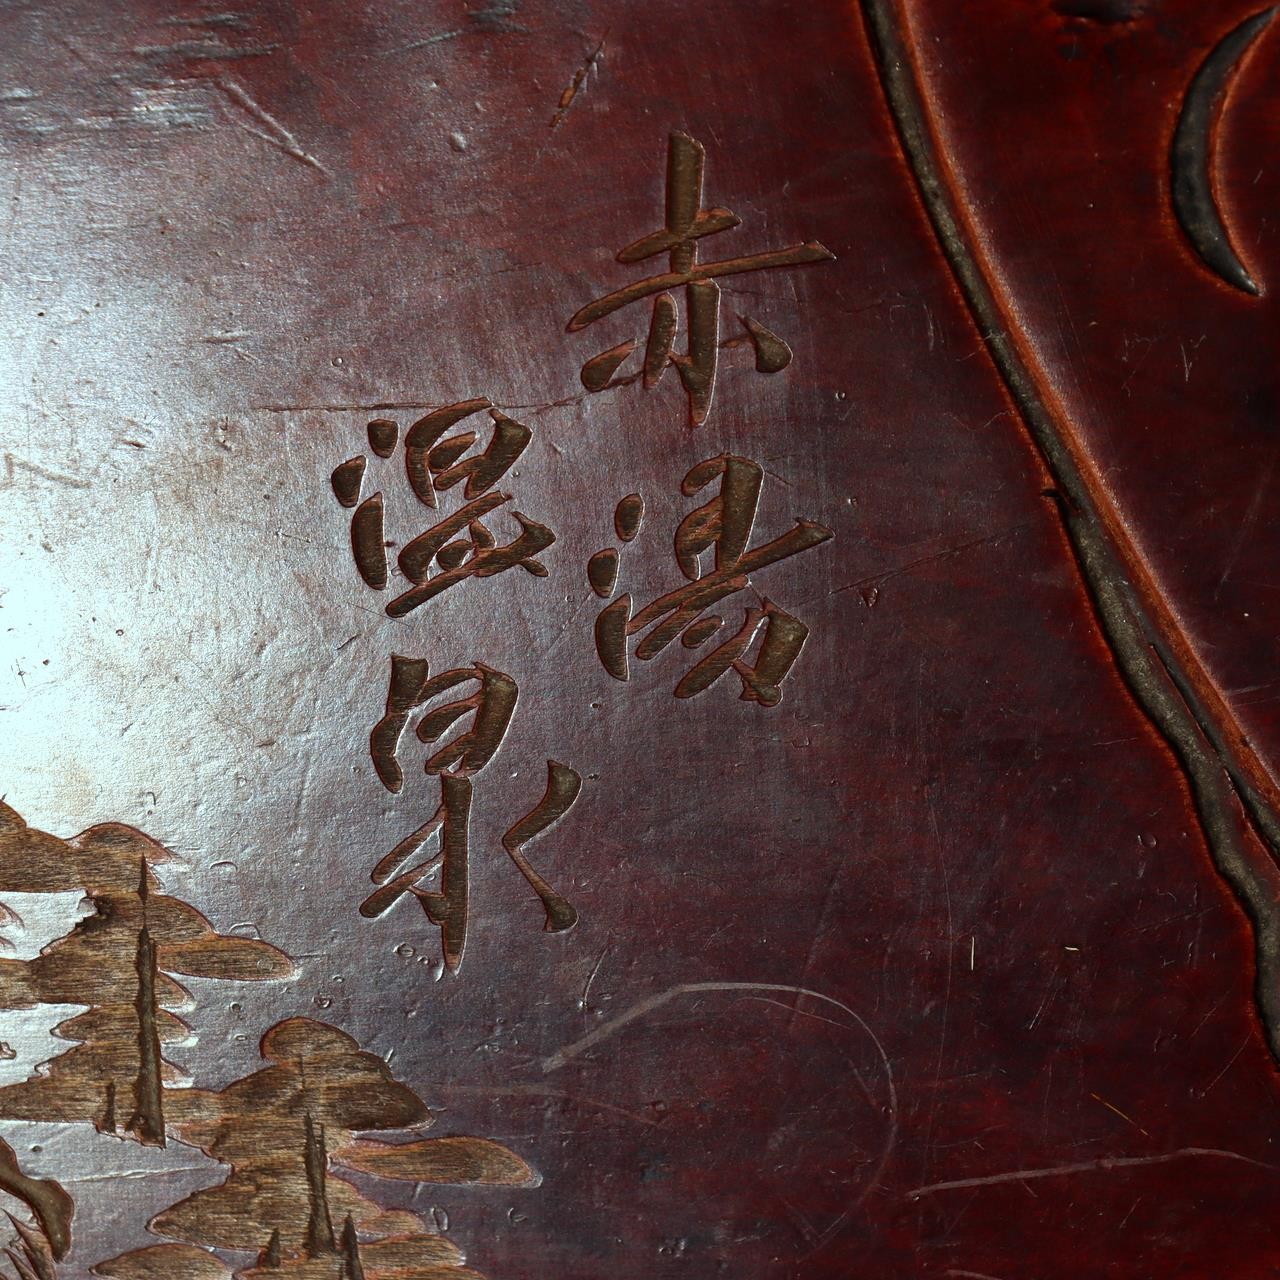 赤湯
温泉